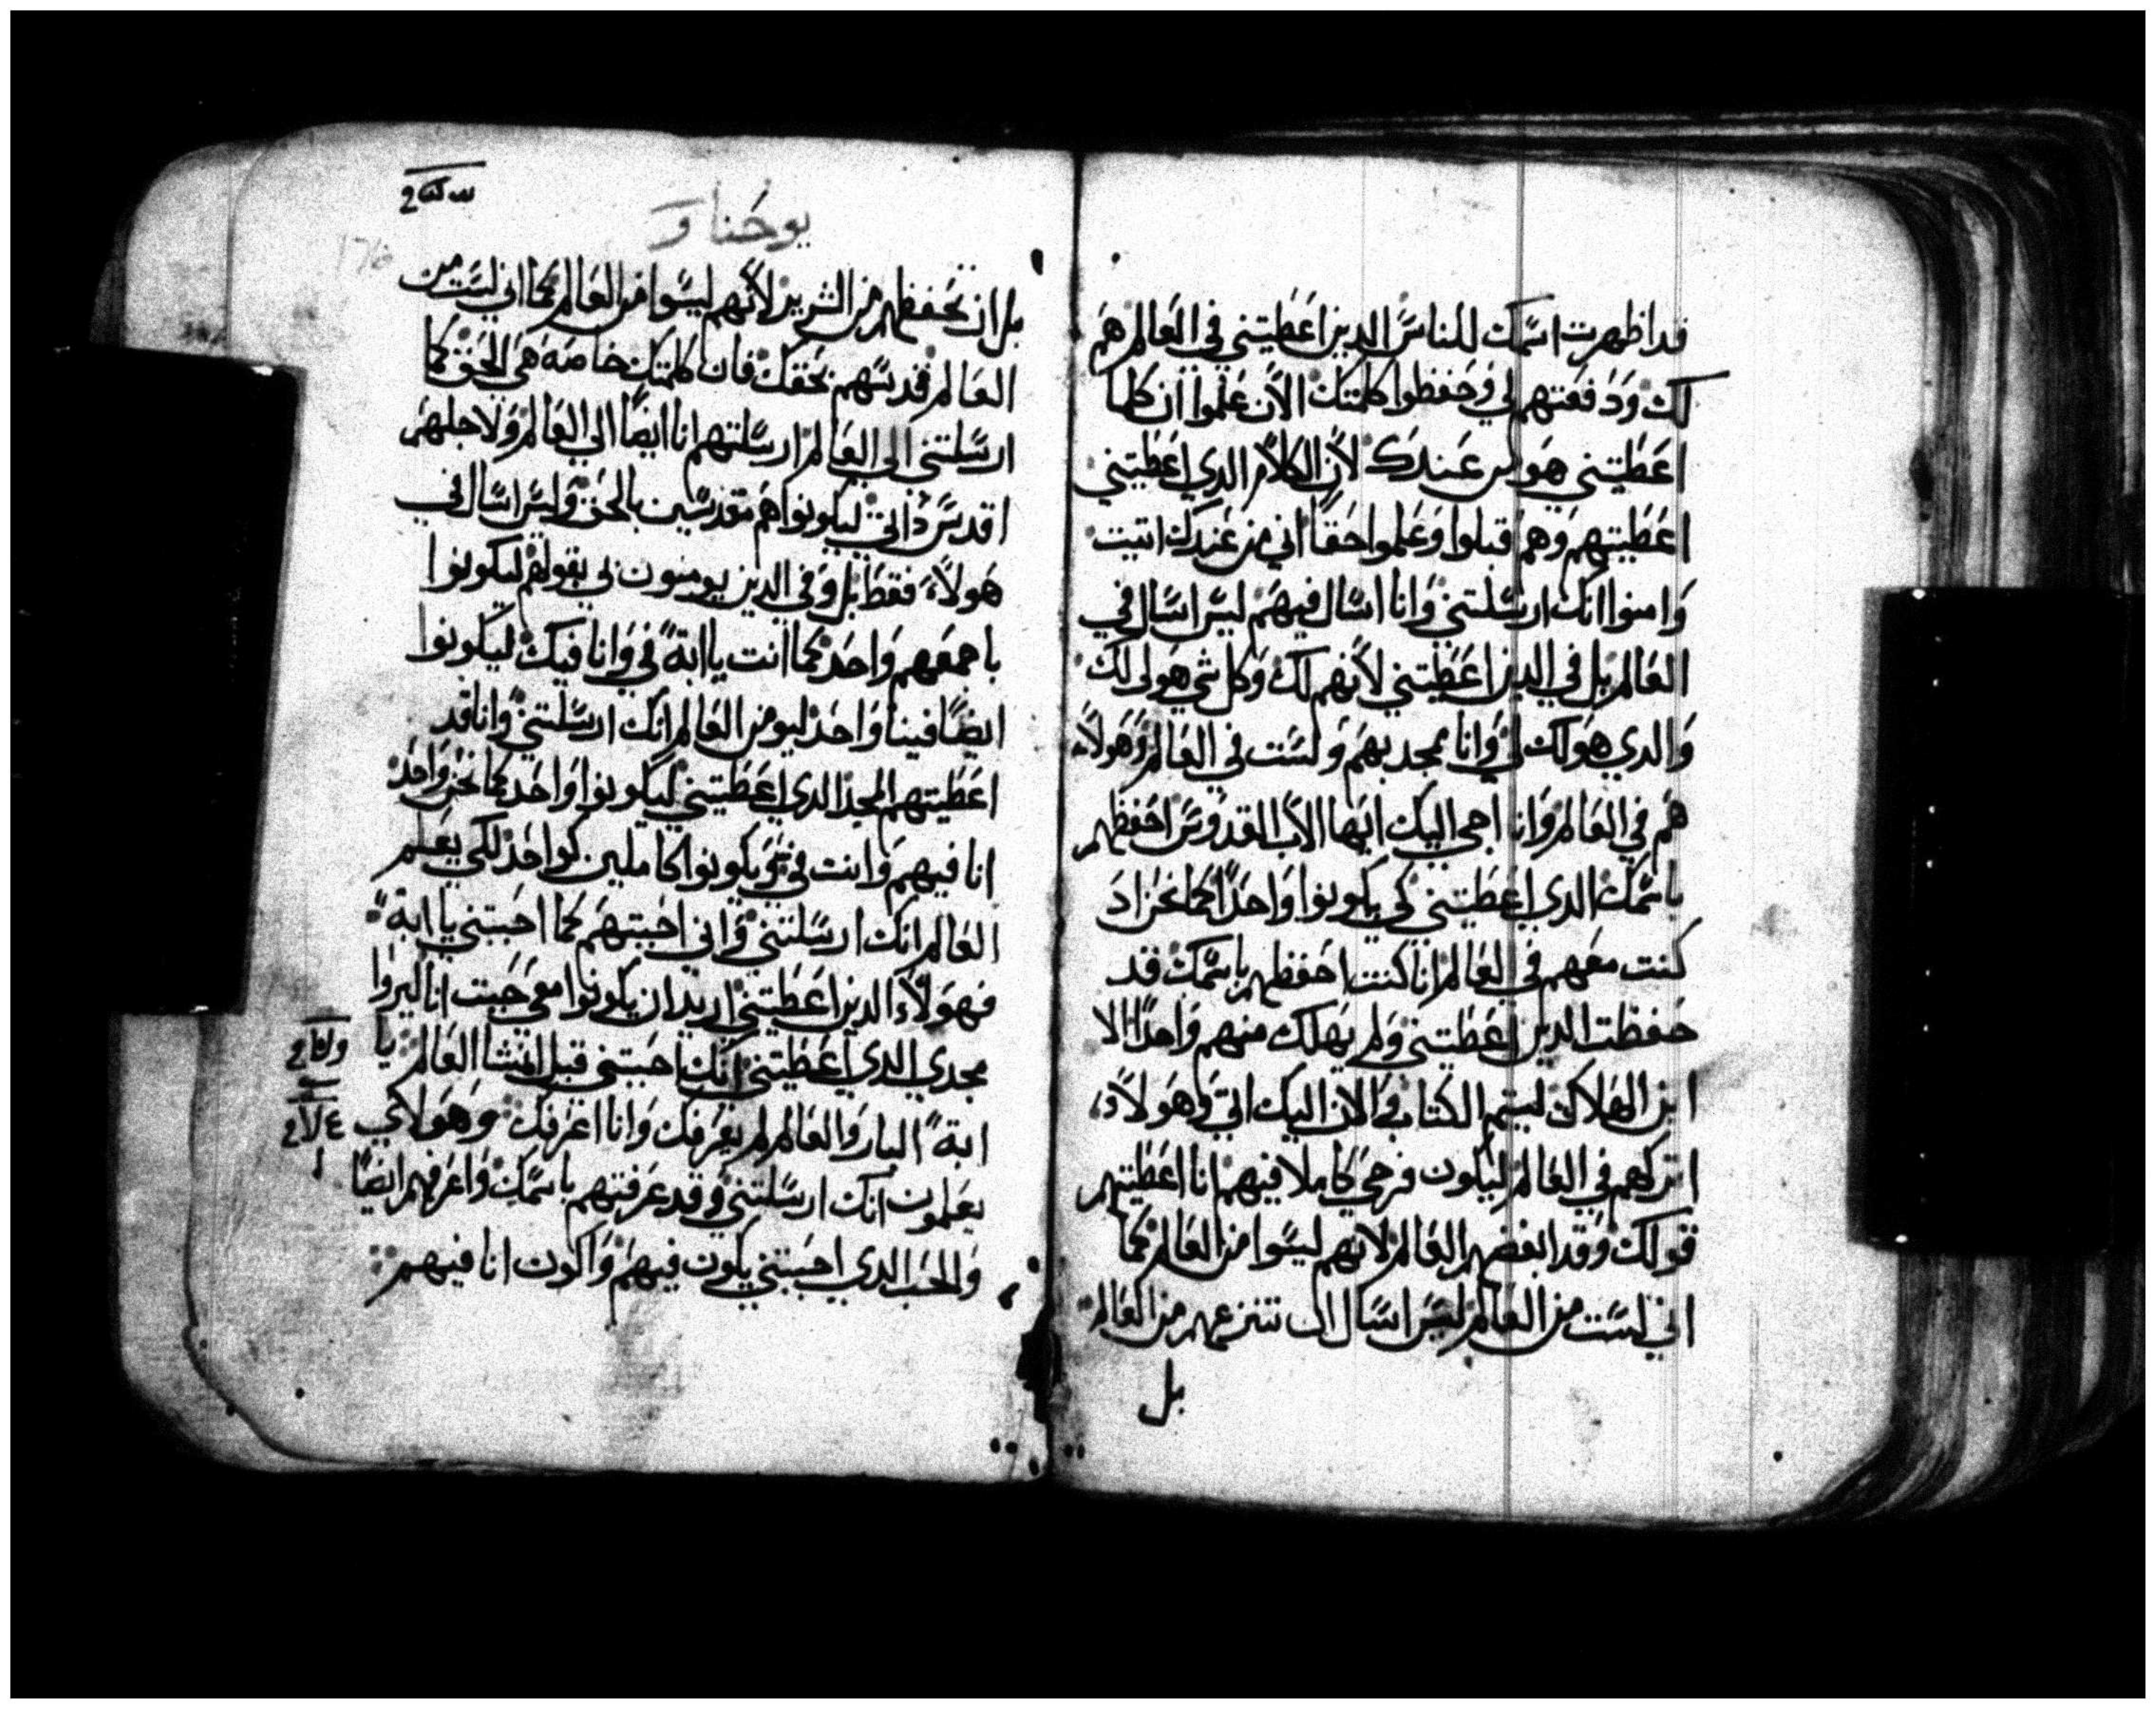 قد اظهرت اسمك للناس الدين اعطيتني في العالم هم
لك ودفعتهم لي وحفظوا كلمتك الان علموا ان كلما
اعطيتني هو من عندك لان الكلام الدي اعطيتني
اعطيتهم وهم قبلوا وعلموا حقا اني من عندك اتيت
وامنوا انك ارسلتني وانا اسال فيهم ليس اسال في
العالم بل في الدين اعطيتني لانهم لك وكل شي هو لي لك
والدي هو لك لي وانا ممجد بهم ولست في العالم وهولاء
هم في العالم وانا اجي اليك ايها الاب القدوس احفظهم
باسمك الدي اعطيتني كي يكونوا واحدا كما نحن اد
كنت معهم في العالم انا كنت احفظهم باسمك قد
حفظت الدين اعطتني ولم يهلك منهم واحدا الا
ابن الهلاك ليتم الكتاب والان اليك اتي وهولاء
اتركهم في العالم ليكون فرحي كاملا فيهم انا اعطيتهم
قولك وقد ابغضهم العالم لانهم ليسوا من العالم كما
اني لست من العالم ليس اسال ان تنزعهم من العالم
بل
يوحنا
176
بل ان تحفظهم من الشرير لانهم ليسوا من العالم كما اني لست من
العالم قدسهم بحقك فان كلمتك خاصة هي الحق كما
ارسلتني الى العالم ارسلتهم انا ايضا الى العالم ولاجلهم
اقدس داتي ليكونوا هم مقدسين بالحق وليس اسال في
هولاء فقط بل وفي الدين يومنون بي بقولهم ليكونوا
باجمعهم واحد كما انت يا ابة في وانا فيك ليكونوا
ايضا فينا واحد ليومن العالم انك ارسلتني وانا قد
اعطيتهم المجد الدي اعطيتني ليكونوا واحد كما نحن واحد
انا فيهم وانت في ويكونوا كاملين كواحد لكي يعلم
العالم انك ارسلتني واني احببتهم كما احببتني يا ابة
فهولاء الدين اعطيتني اريد ان يكونوا معي حيت انا ليروا
مجدي الدي اعطيتني انك احببتني قبل انشا العالم يا
ابة البار والعالم لم يعرفك وانا اعرفك وهولاي
يعلمون انك ارسلتني وقد عرفتهم باسمك واعرفهم ايضا
والحب الدي احببتني يكون فيهم واكون انا فيهم